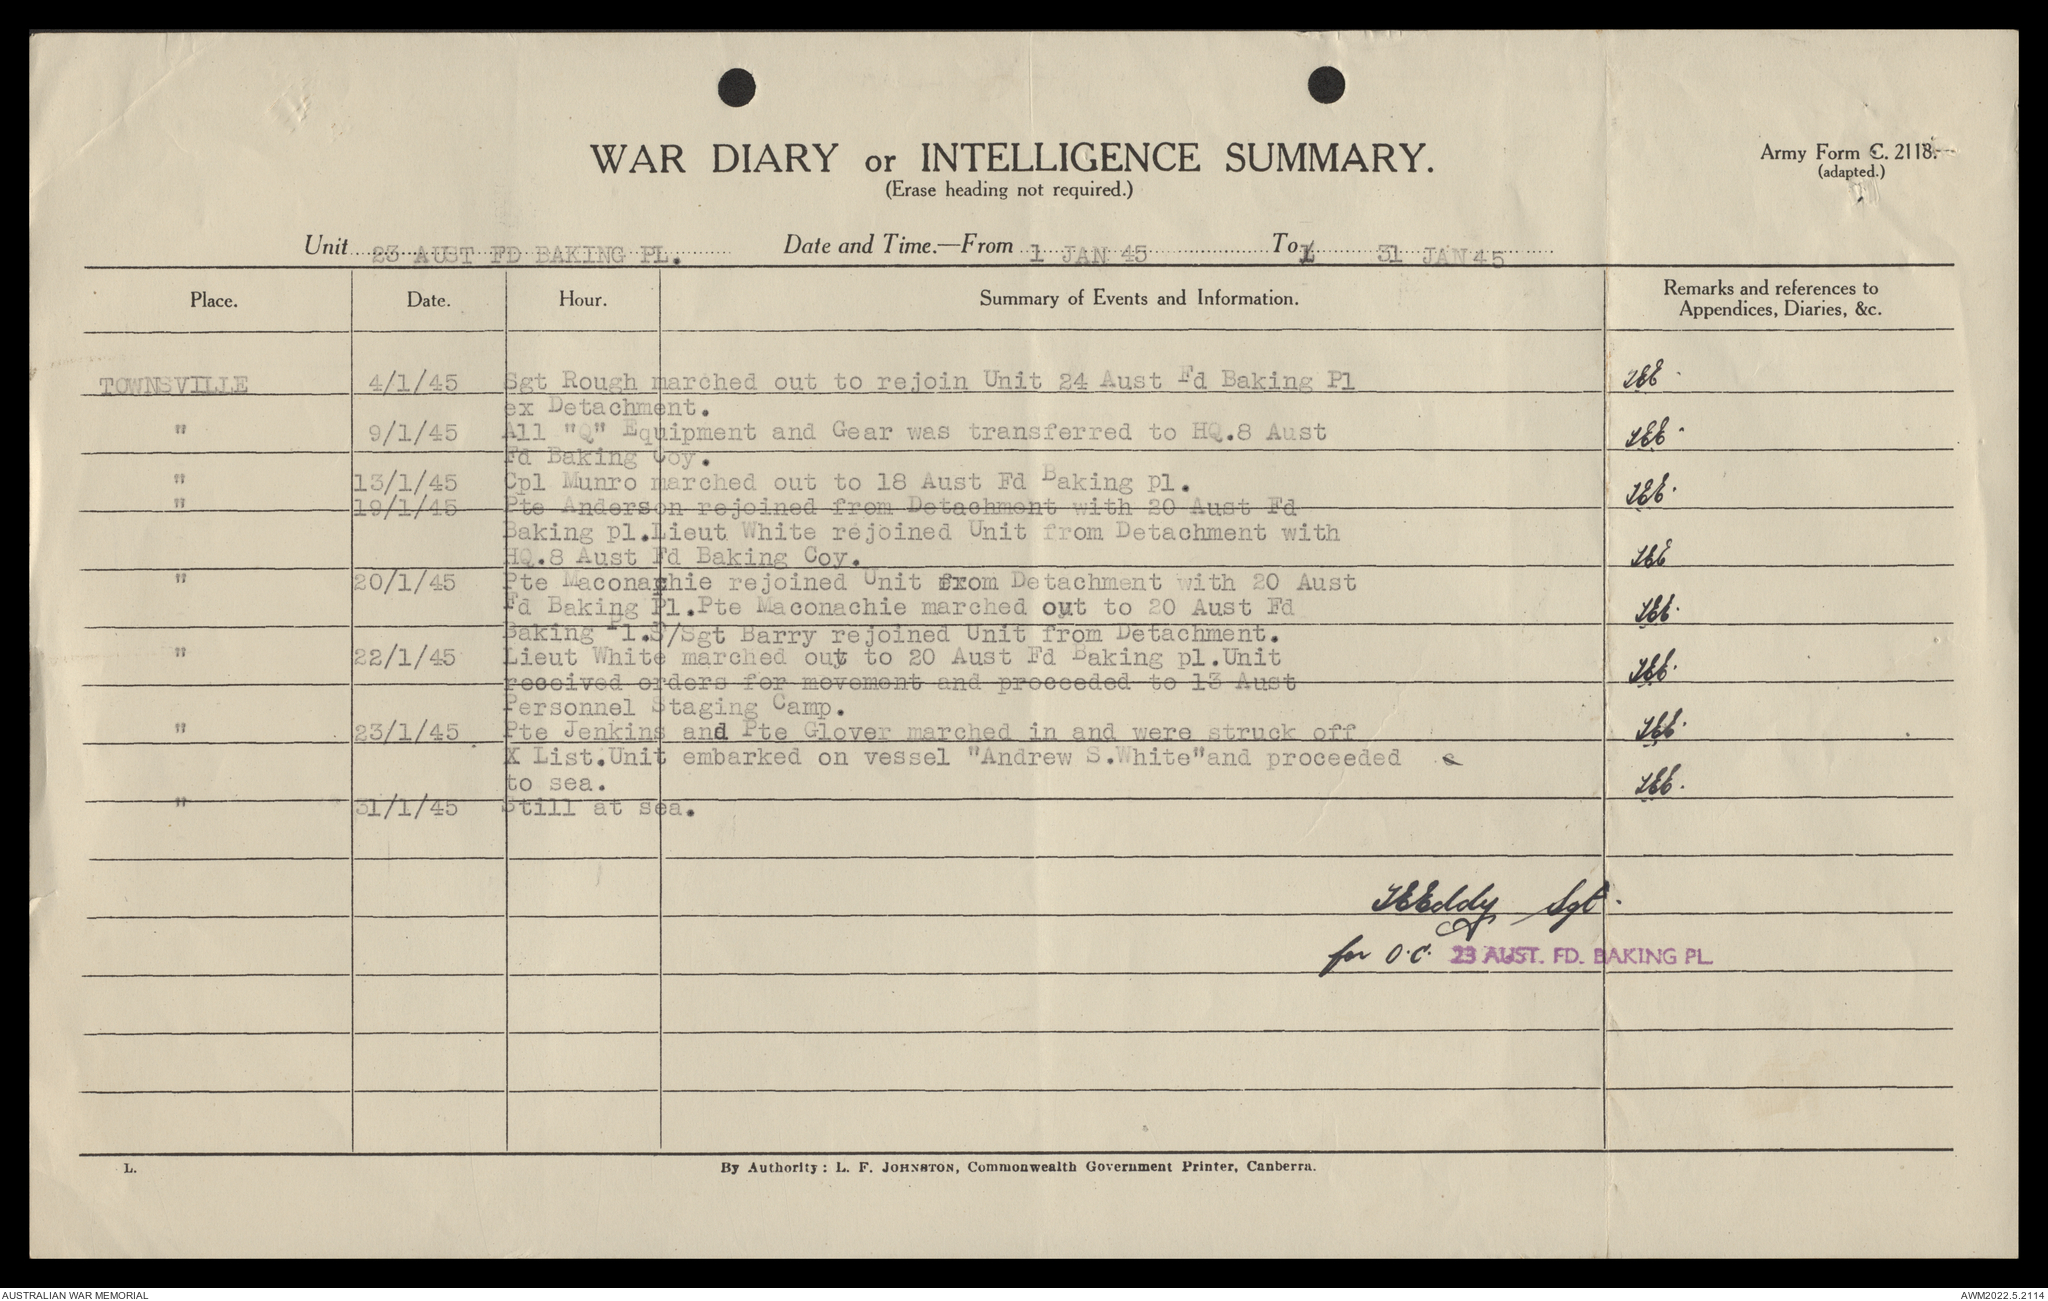 WAR DIARY or INTELLIGENCE SUMMARY.
(Erase heading not required.)
Army Form C. 2118.
(adapted.)
Unit 23 AUST FD BAKING PL. Date and Time.—From 1 JAN 45 To 31 JAN 45
Place. Date. Hour. Summary of Events and Information. Remarks and references to Appendices, Diaries, &c.
TOWNSVILLE 4/1/45 Sgt Rough marched out to rejoin Unit 24 Aust Fd Baking Pl TEE.
ex Detachment.
" 9/1/45 All "Q" Equipment and Gear was transferred to HQ.8 Aust TEE.
Fd Baking Coy.
" 13/1/45 Cpl Munro marched out to 18 Aust Fd Baking pl. TEE.
" 19/1/45 Pte Anderson rejoined from Detachment with 20 Aust Fd
Baking pl.Lieut White rejoined Unit from Detachment with
HQ.8 Aust Fd Baking Coy. TEE
" 20/1/45 Pte Maconachie rejoined Unit from Detachment with 20 Aust
Fd Baking Pl.Pte Maconachie marched out to 20 Aust Fd TEE.
Baking Pl.S/Sgt Barry rejoined Unit from Detachment.
" 22/1/45 Lieut White marched out to 20 Aust Fd Baking pl.Unit TEE.
received orders for movement and proceeded to 13 Aust
Personnel Staging Camp.
" 23/1/45 Pte Jenkins and Pte Glover marched in and were struck off TEE.
X List.Unit embarked on vessel "Andrew S.White"and proceeded
to sea. TEE.
" 31/1/45 Still at sea.
TEEddy Sgt.
for O.C. 23 AUST. FD. BAKING PL
L. By Authority: L. F. JOHNSTON, Commonwealth Government Printer, Canberra.
AUSTRALIAN WAR MEMORIAL AWM2022.5.2114